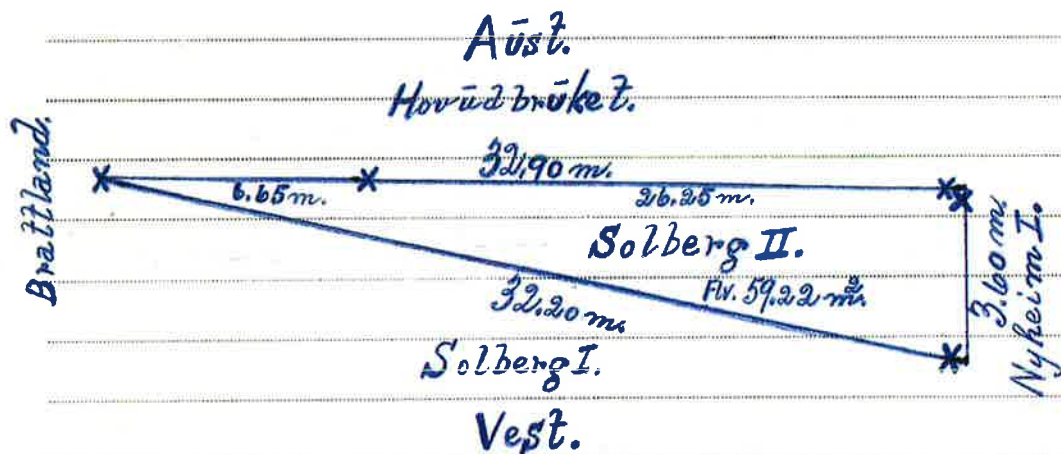 Aūst.
Hovūdbrūket.
Brattland.
32,90 m.
6.65 m.
26.25 m.
Solberg II.
Flv. 59.22 m².
3.60 m.
Nyheim I.
32,20 m.
Solberg I.
Vest.